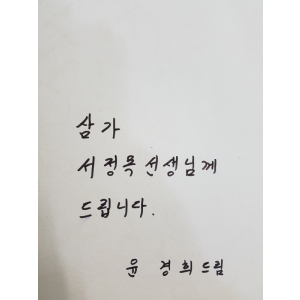 삼가
서정목선생님께
드립니다.
윤 경희드림